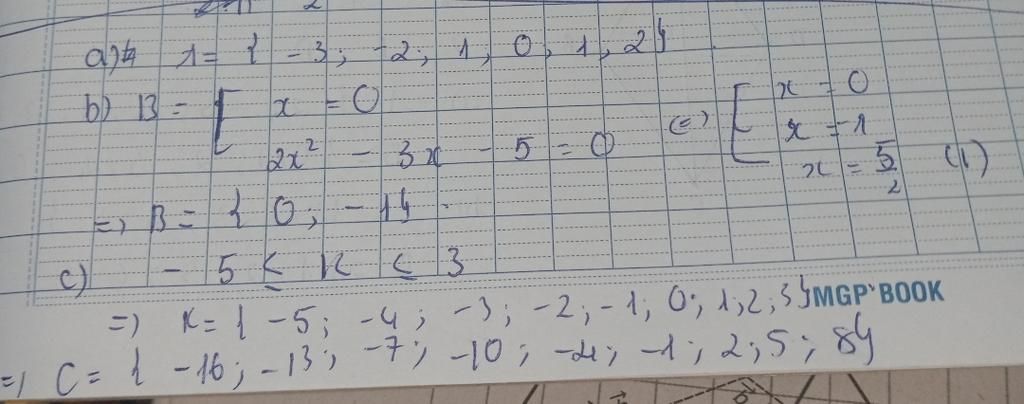 a) A = { -3; -2, 1, 0, 1, 2}
b) B = [ x = 0
2x² - 3x - 5 = 0 (=) [ x = 0
x = -1
x = 5/2 (l)
=) B = { 0; -1}.
c) - 5 ≤ K ≤ 3
=) K = { -5; -4; -3; -2; -1; 0; 1; 2; 3}
MGP BOOK
=) C = { -16; -13; -7; -10; -4; -1; 2; 5; 8}